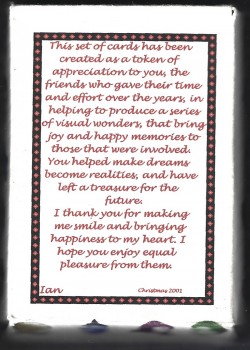 This set of cards has been
created as a token of
appreciation to you, the
friends who gave their time
and effort over the years, in
helping to produce a series
of visual wonders, that bring
joy and happy memories to
those that were involved.
You helped make dreams
become realities, and have
left a treasure for the
future.
I thank you for making
me smile and bringing
happiness to my heart. I
hope you enjoy equal
pleasure from them.
Ian Christmas 2002